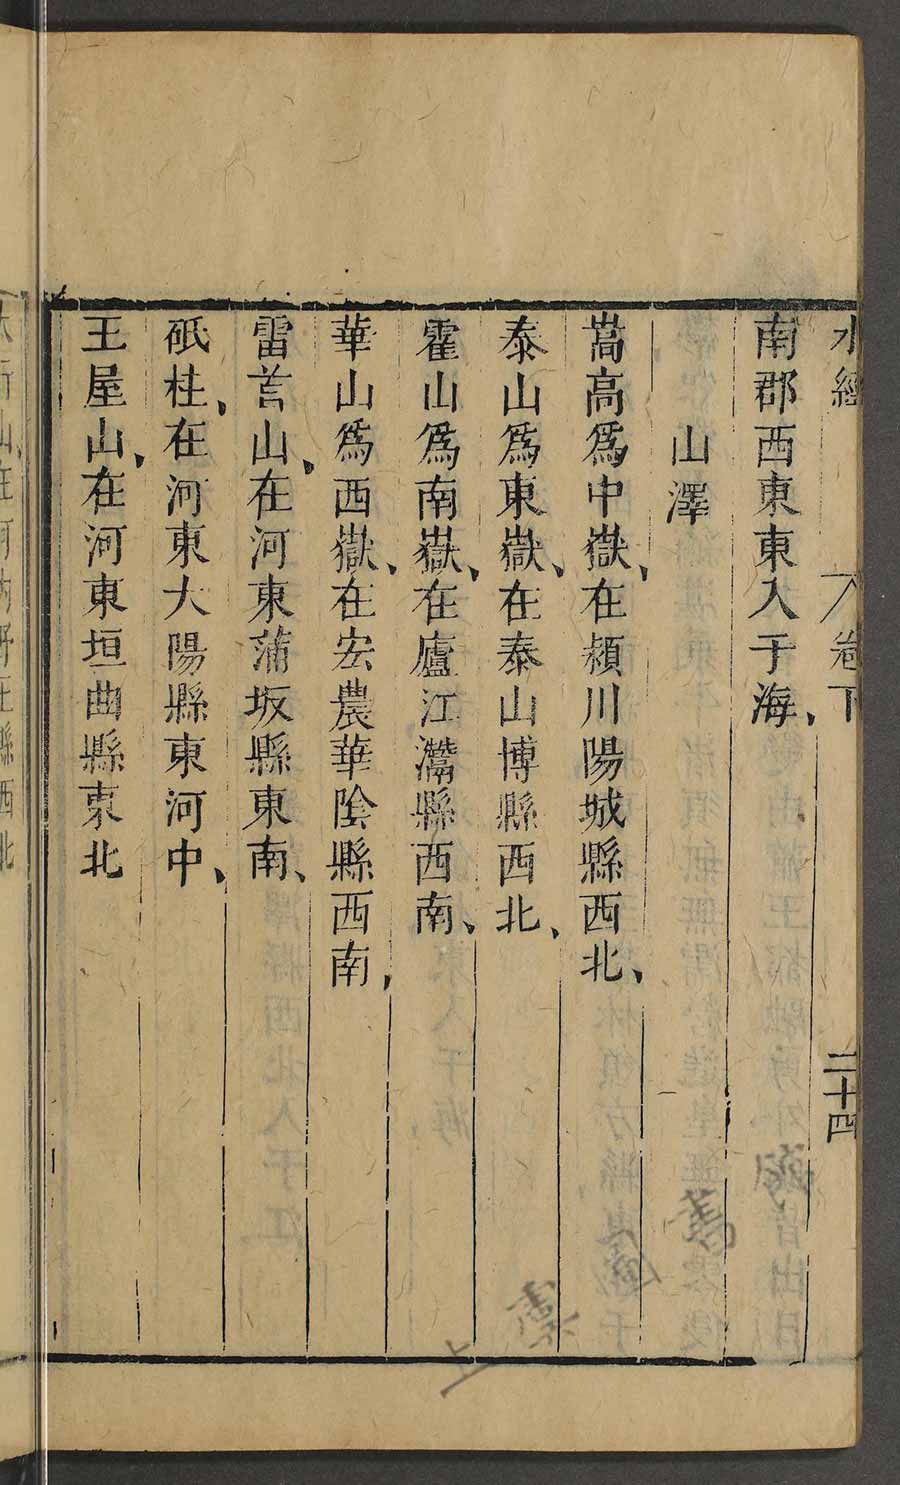 水經 卷下 二十四
南郡西東東入于海、
山澤
嵩高爲中嶽、在潁川陽城縣西北、
泰山爲東嶽、在泰山博縣西北、
霍山爲南嶽、在廬江灊縣西南、
華山爲西嶽、在宏農華陰縣西南、
雷首山、在河東蒲坂縣東南、
砥柱、在河東大陽縣東河中、
王屋山、在河東垣曲縣東北